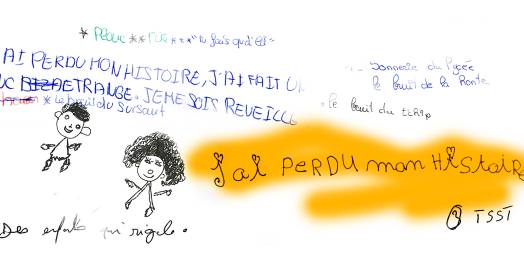 * PLOUC ** RUE *** "tu fais quoi là"
AI PERDU MON HISTOIRE, J'AI FAIT U
UC ETRANGE. JE ME SUIS REVEILLE
* Le bruit du Sursaut
Sonnerie du Lycée
le bruit de la Honte
• le bruit du temps
j'ai PERDU mon HIStoire
Des enfants qui rigole.
TSST